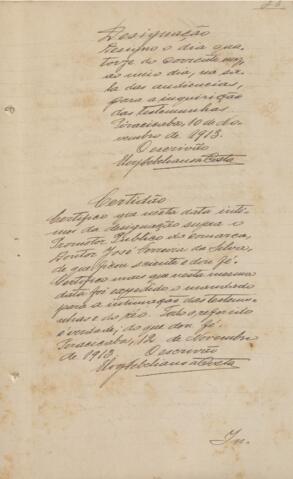 Designação
Designo o dia qua-
torze do corrente mez,
ao meio dia, na sa-
la das audiencias,
para a inquirição
das testemunhas.
Piracicaba, 10 de No-
vembro de 1913.
O escrivão
Certidão
Certifico que nesta data inti-
mei da designação supra o
Promotor Publico da comarca,
Doutor José Correa da Silva,
de que ficou sciente e dou fé.
Certifico mais que nesta mesma
data foi expedido o mandado
para a intimação das testemu-
nhas e do réo. Todo o referido
é verdade, do que dou fé.
Piracicaba, 12 de Novembro
de 1913. O escrivão
Ju.